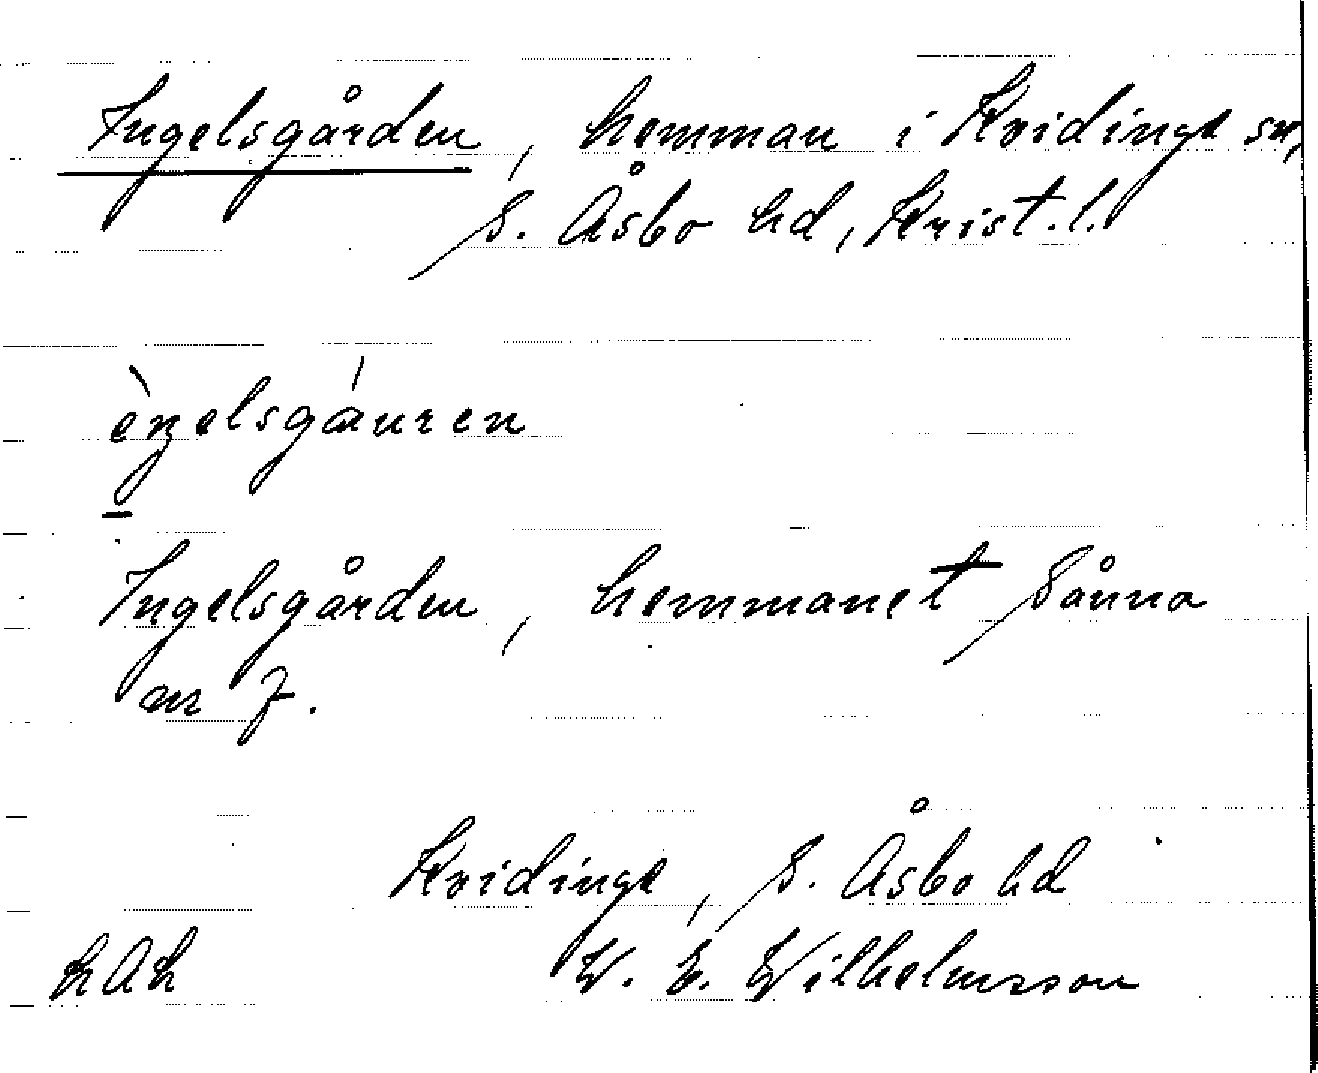 Ingelsgården, hemman i Kvidinge sn,
S. Åsbo hd, Krist. l.
èŋelsgáuren
Ingelsgården, hemmanet Sånna
nr 7.
Kvidinge, S. Åsbo hd
W. E. Wilhelmsson